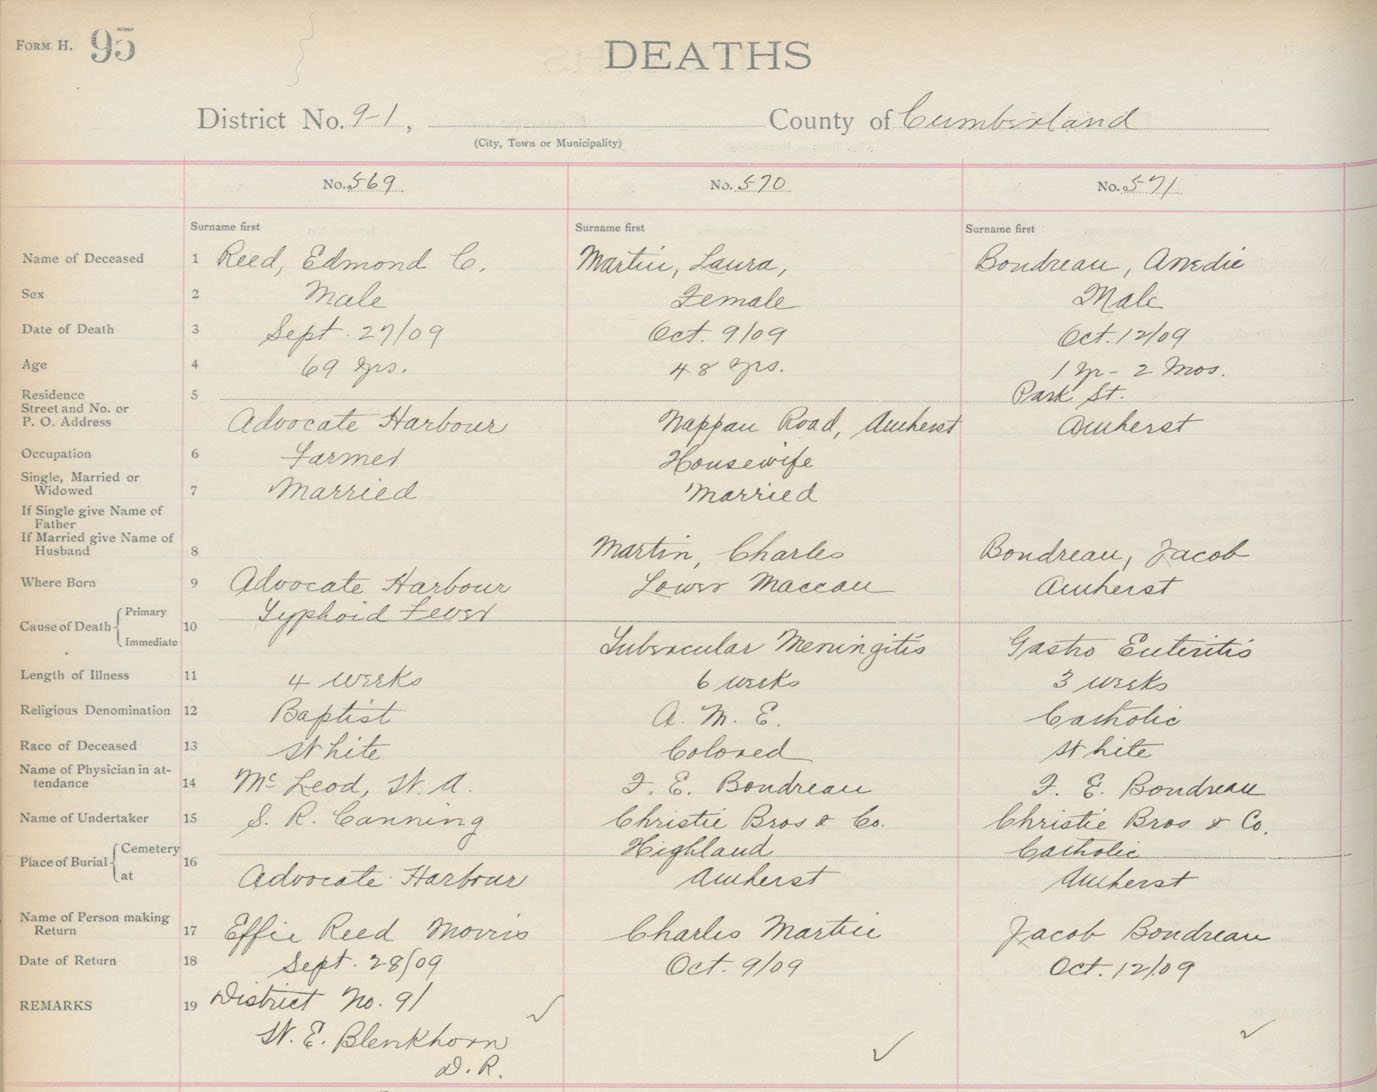 FORM H. 95
DEATHS
District No. 9-1, County of Cumberland
(City, Town or Municipality)
No. 569 No. 570 No. 571
Surname first Surname first Surname first
Name of Deceased 1 Reed, Edmond C. Martin, Laura, Boudreau, Amedie
Sex 2 Male Female Male
Date of Death 3 Sept. 27/09 Oct. 9/09 Oct. 12/09
Age 4 69 yrs. 48 yrs. 1 yr - 2 mos.
Residence 5 Park St.
Street and No. or
P. O. Address Advocate Harbour Nappan Road, Amherst Amherst
Occupation 6 Farmer Housewife
Single, Married or
Widowed 7 Married Married
If Single give Name of
Father
If Married give Name of
Husband 8 Martin, Charles Boudreau, Jacob
Where Born 9 Advocate Harbour Lower Maccan Amherst
Cause of Death Primary 10 Typhoid Fever
Immediate Tubercular Meningitis Gastro Enteritis
Length of Illness 11 4 weeks 6 weeks 3 weeks
Religious Denomination 12 Baptist A. M. E. Catholic
Race of Deceased 13 White Colored White
Name of Physician in at-
tendance 14 McLeod, W. A. F. E. Boudreau F. E. Boudreau
Name of Undertaker 15 S. R. Canning Christie Bros & Co. Christie Bros & Co.
Place of Burial Cemetery 16 Highland Catholic
at Advocate Harbour Amherst Amherst
Name of Person making
Return 17 Effie Reed Morris Charles Martin Jacob Boudreau
Date of Return 18 Sept. 28/09 Oct. 9/09 Oct. 12/09
REMARKS 19 District No. 91
W. E. Blenkhorn
D. R.